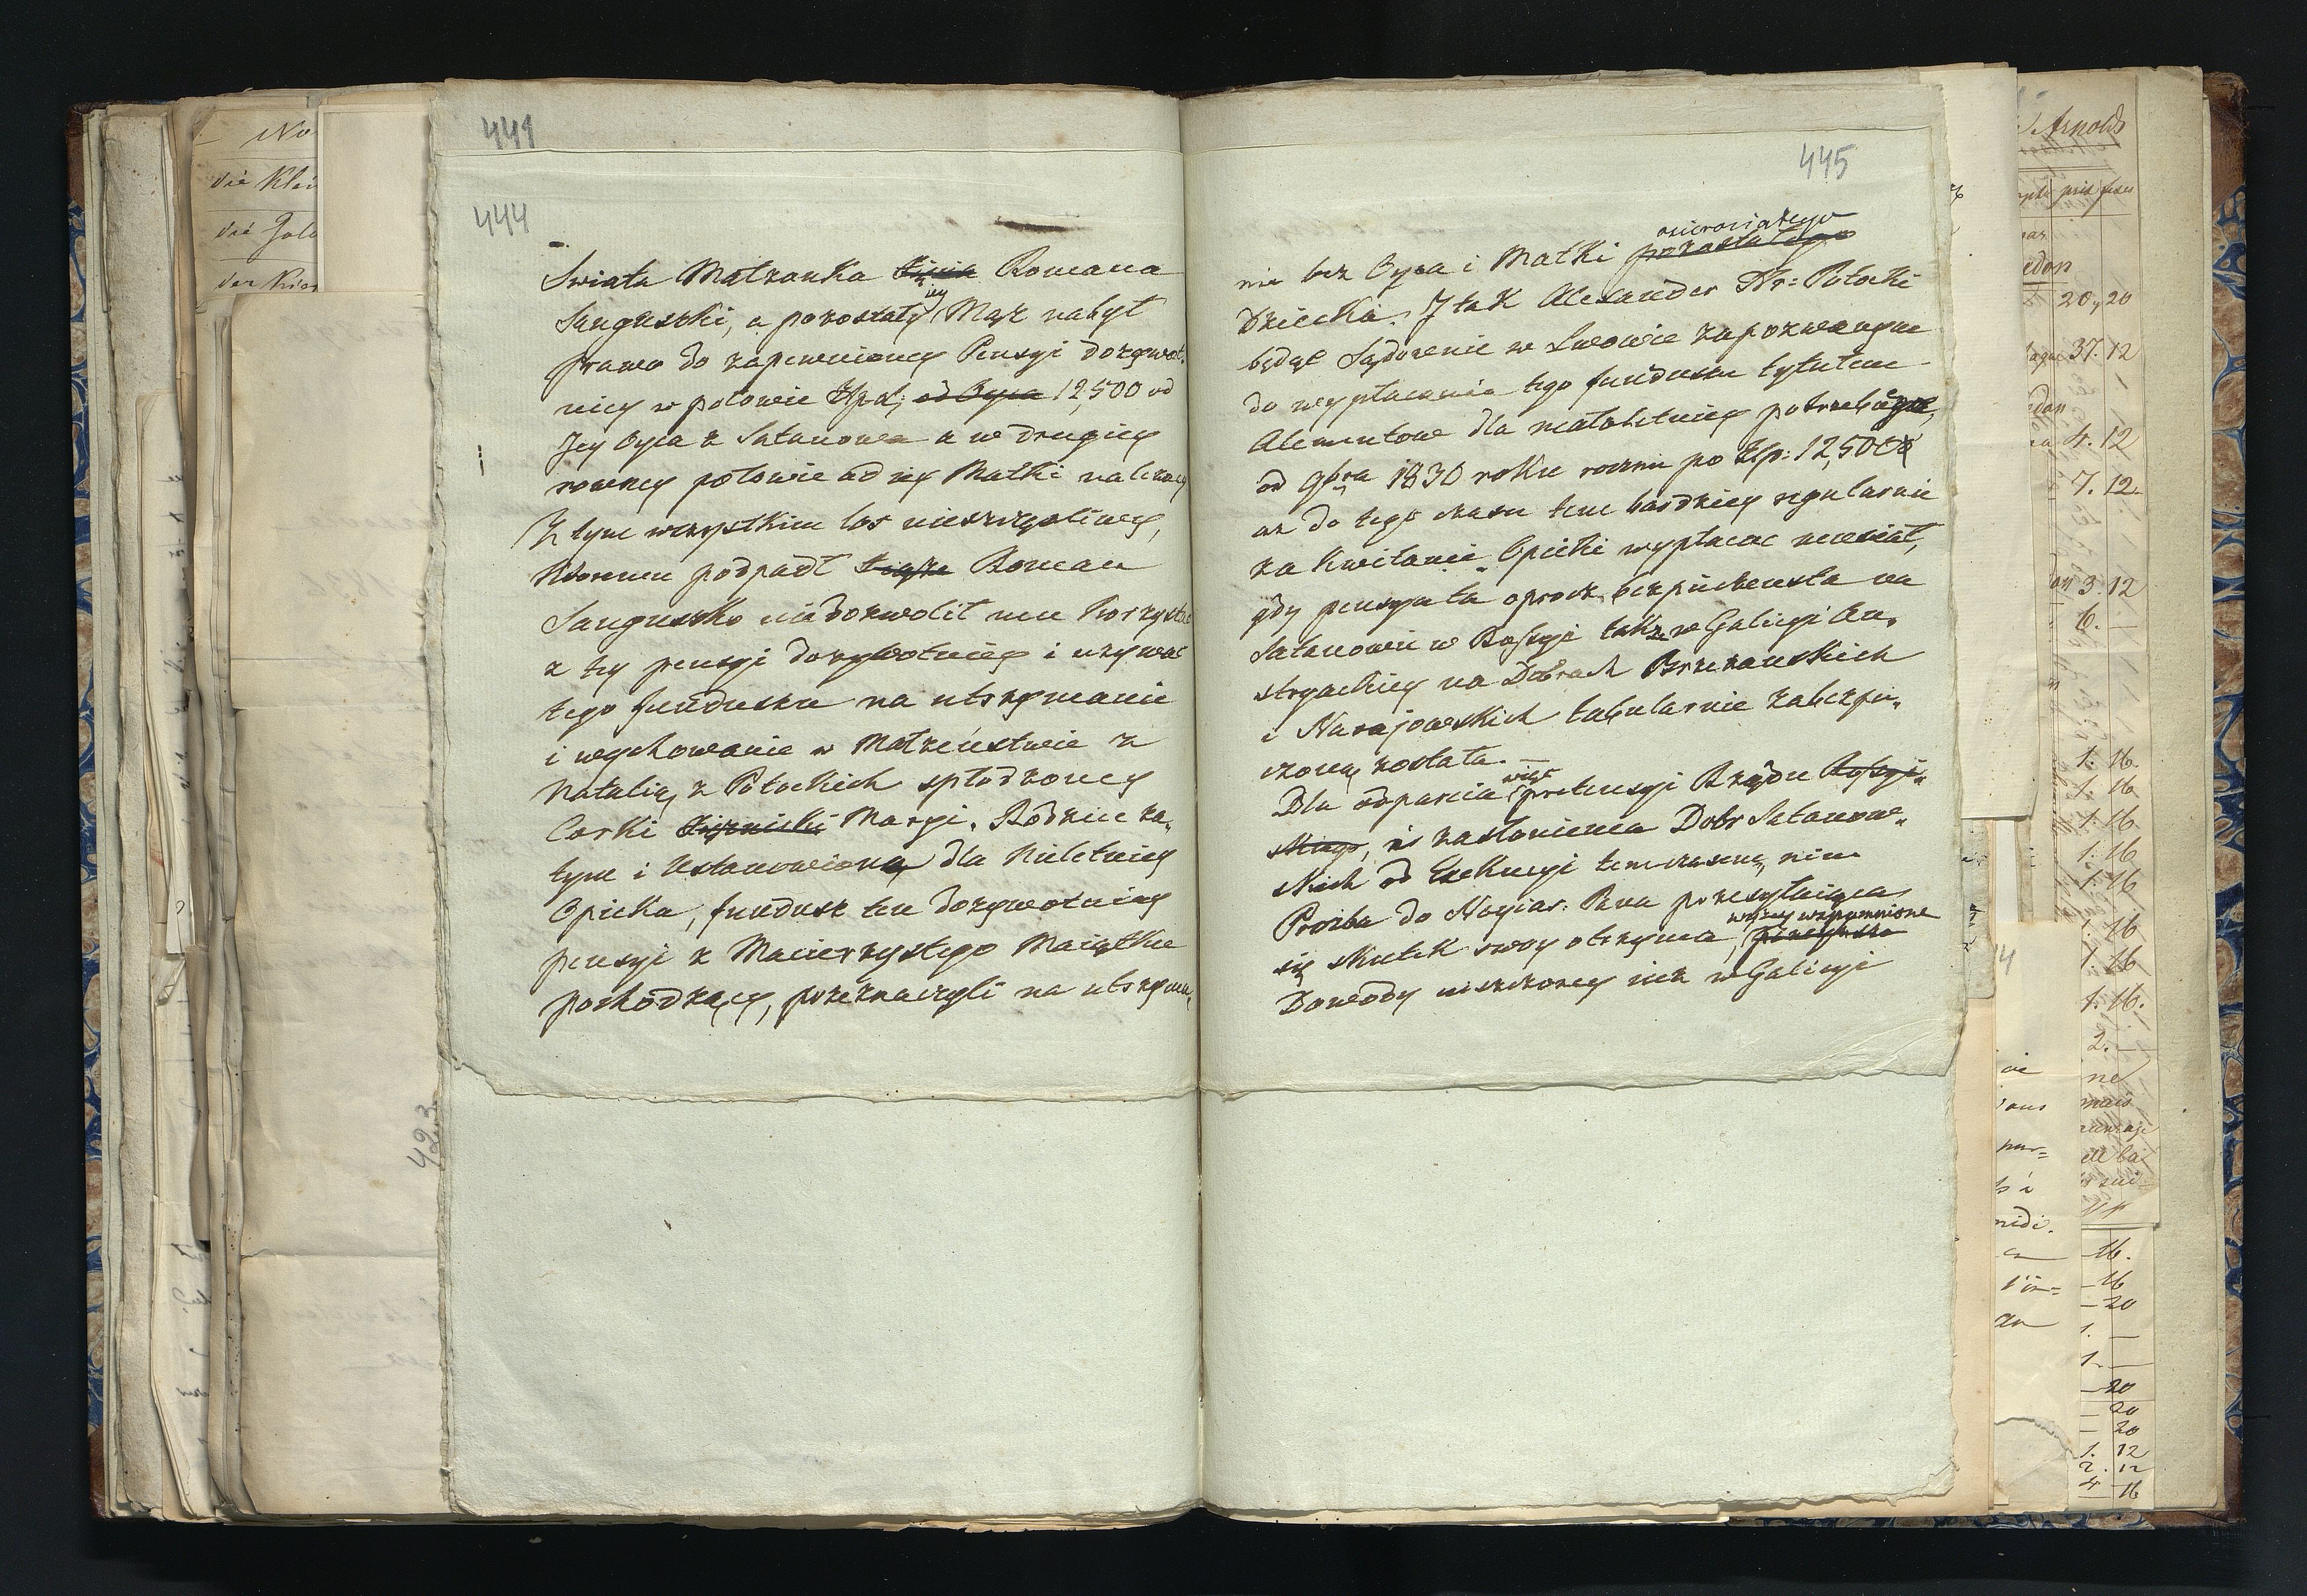 441
444
Swiata Małżonka Xięcia Romana
Sanguszki, a pozostały iey Mąż nabył
prawo do zapewnioney Pensyi dożywot-
niey w połowie Złp. od Oyca 12,500 od
Jey Oyca z Satanowa a w drugiey
rowney połowie od iey Matki należney
Z tym wszystkim los nieszczęśliwey,
ktoremu podpadł Xiąże Roman
Sanguszko niedozwolił mu korzystać
z tey pensyi dożywotniey i używać
tego funduszu na utrzymanie
i wychowanie w Małżeństwie z
Natalią z Potockich spłodzoney
Corki Xiężniczki Maryi. Rodzice za„
tym i Ustanowiona dla Nieletniey
Opieka, fundusz ten dożywotniey
pensyi z Macierzystego Maiątku
pochodzącey, przeznaczyli na utrzyma„
445
nie bez Oyca i Matki pozostałego osierociałego
dziecka. I tak Alexander Hr: Potocki
będąc Sądownie w Lwowie zapozwanym
do wypłacania tego funduszu tytułem
Alementow dla małoletniey potrzebney,
od 9bra 1830 roku rocznie po Złp: 12,500
aż do tego czasu tem bardziey regularnie
za kwitami Opieki wypłacać musiał,
gdy pensya ta oprocz bezpieczeństa na
Satanowie w Rossyi także w Galicyi Au„
stryackiey na Dobrach Brzeżanskich
i Narajowskich tabularnie zabezpie„
czoną została. —
Dla odparcia więc pretensyi Rządu Rossyi„
skiego, i zasłonienia Dobr Satanow„
skich od Exekucyi temczasem, nim
Prozba do Nayias: Pana przesyłaiąca
się skutek swoy otrzyma, wyżey wspomnione
Dowody uiszczoney iuż w Galicyi
423
No
die
die
der
Arnold
20,20
37.12
4.12
7.12
3.12
6.—
1.16.
1.16
1.16
1.16
1.16
1.16
1.16
1.16.
2.—
16.
16
20
1.—
1.—
20
20
20
1.12
2.12
4 16